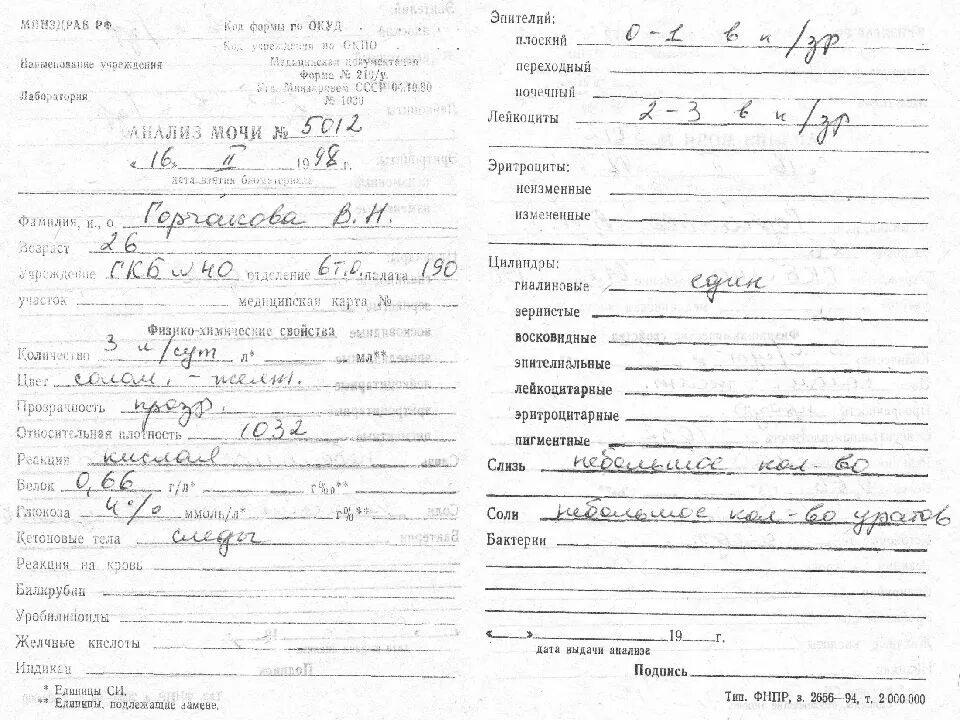 МИНЗДРАВ РФ
Код формы по ОКУД
Код учреждения по ОКПО
Наименование учреждения
Медицинская документация
Форма № 210/у
Утв. Минздравом СССР 04.10.80
№ 1030
Лаборатория
АНАЛИЗ МОЧИ № 5012
«16» II 1998 г.
дата взятия биоматериала
Фамилия, и., о Горчакова В.Н.
Возраст 26
Учреждение ГКБ №40 отделение 6т.о. палата 190
участок медицинская карта №
Физико-химические свойства
Количество 3 л/сут л* мл**
Цвет солом. - желт.
Прозрачность прозр.
Относительная плотность 1032
Реакция кислая
Белок 0,66 г/л* г‰**
Глюкоза 4% ммоль/л* г%**
Кетоновые тела следы
Реакция на кровь
Билирубин
Уробилиноиды
Желчные кислоты
Индикан
* Единицы СИ.
** Единицы, подлежащие замене.
Эпителий:
плоский 0-1 в п/зр
переходный
почечный
Лейкоциты 2-3 в п/зр
Эритроциты:
неизменные
измененные
Цилиндры:
гиалиновые един
зернистые
восковидные
эпителиальные
лейкоцитарные
эритроцитарные
пигментные
Слизь небольшое кол-во
Соли небольшое кол-во уратов
Бактерии
« » 19 г.
дата выдачи анализа
Подпись
Тип. ФНПР, з. 2656-94, т. 2 000 000